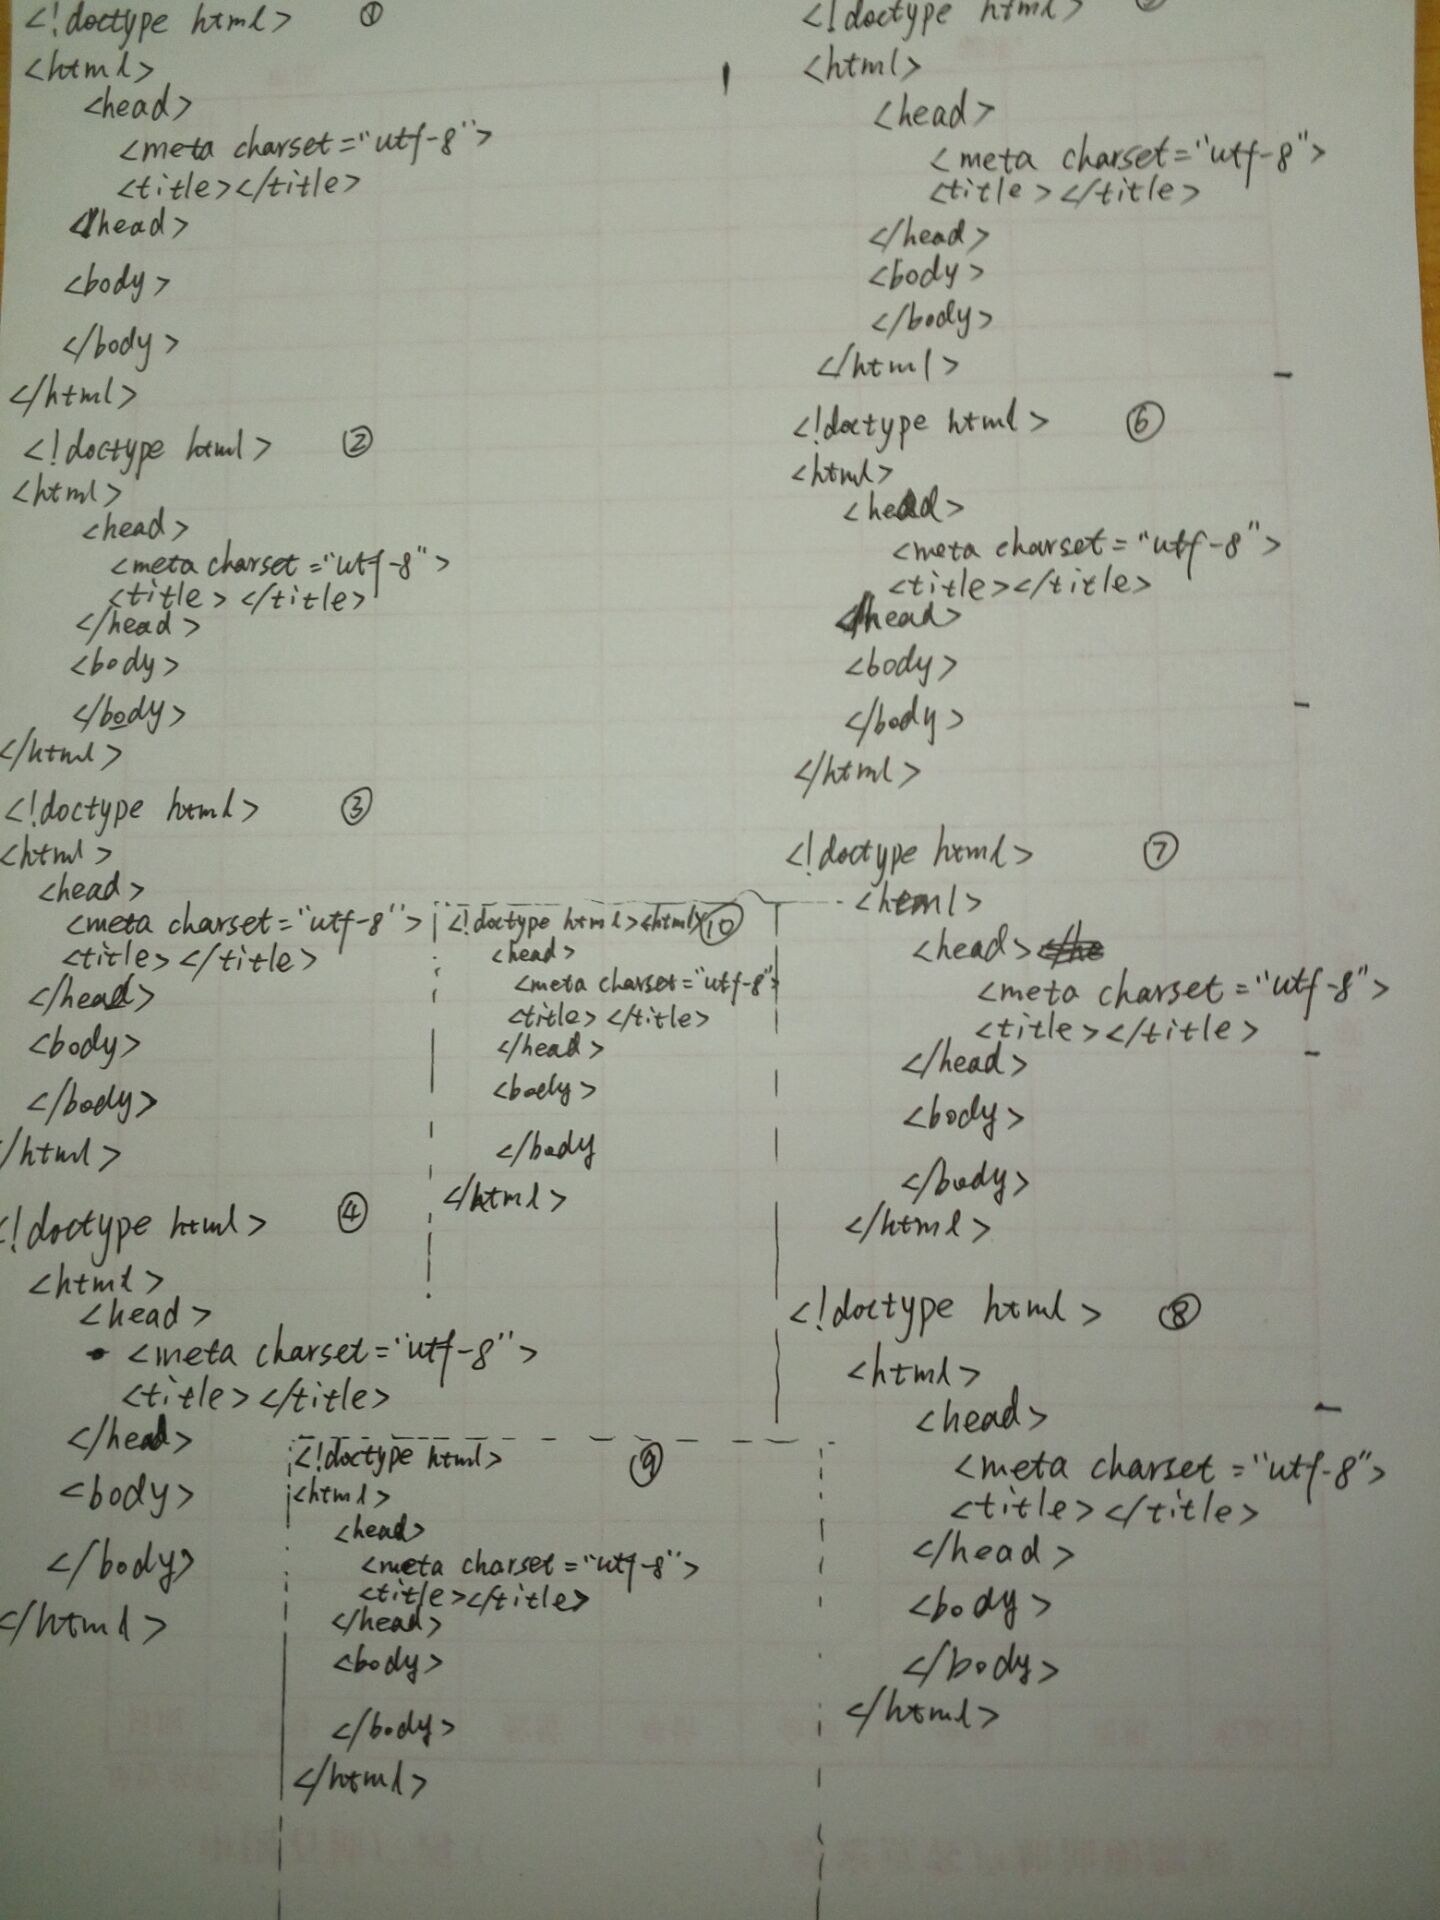 <!doctype html> ①
<html>
<head>
<meta charset="utf-8">
<title></title>
</head>
<body>
</body>
</html>
<!doctype html> ②
<html>
<head>
<meta charset="utf-8">
<title></title>
</head>
<body>
</body>
</html>
<!doctype html> ③
<html>
<head>
<meta charset="utf-8">
<title></title>
</head>
<body>
</body>
</html>
<!doctype html> ④
<html>
<head>
<meta charset="utf-8">
<title></title>
</head>
<body>
</body>
</html>
<!doctype html>
<html>
<head>
<meta charset="utf-8">
<title></title>
</head>
<body>
</body>
</html>
<!doctype html> ⑥
<html>
<head>
<meta charset="utf-8">
<title></title>
</head>
<body>
</body>
</html>
<!doctype html> ⑦
<html>
<head>
<meta charset="utf-8">
<title></title>
</head>
<body>
</body>
</html>
<!doctype html> ⑧
<html>
<head>
<meta charset="utf-8">
<title></title>
</head>
<body>
</body>
</html>
<!doctype html> ⑨
<html>
<head>
<meta charset="utf-8">
<title></title>
</head>
<body>
</body>
</html>
<!doctype html><html> ⑩
<head>
<meta charset="utf-8">
<title></title>
</head>
<body>
</body
</html>